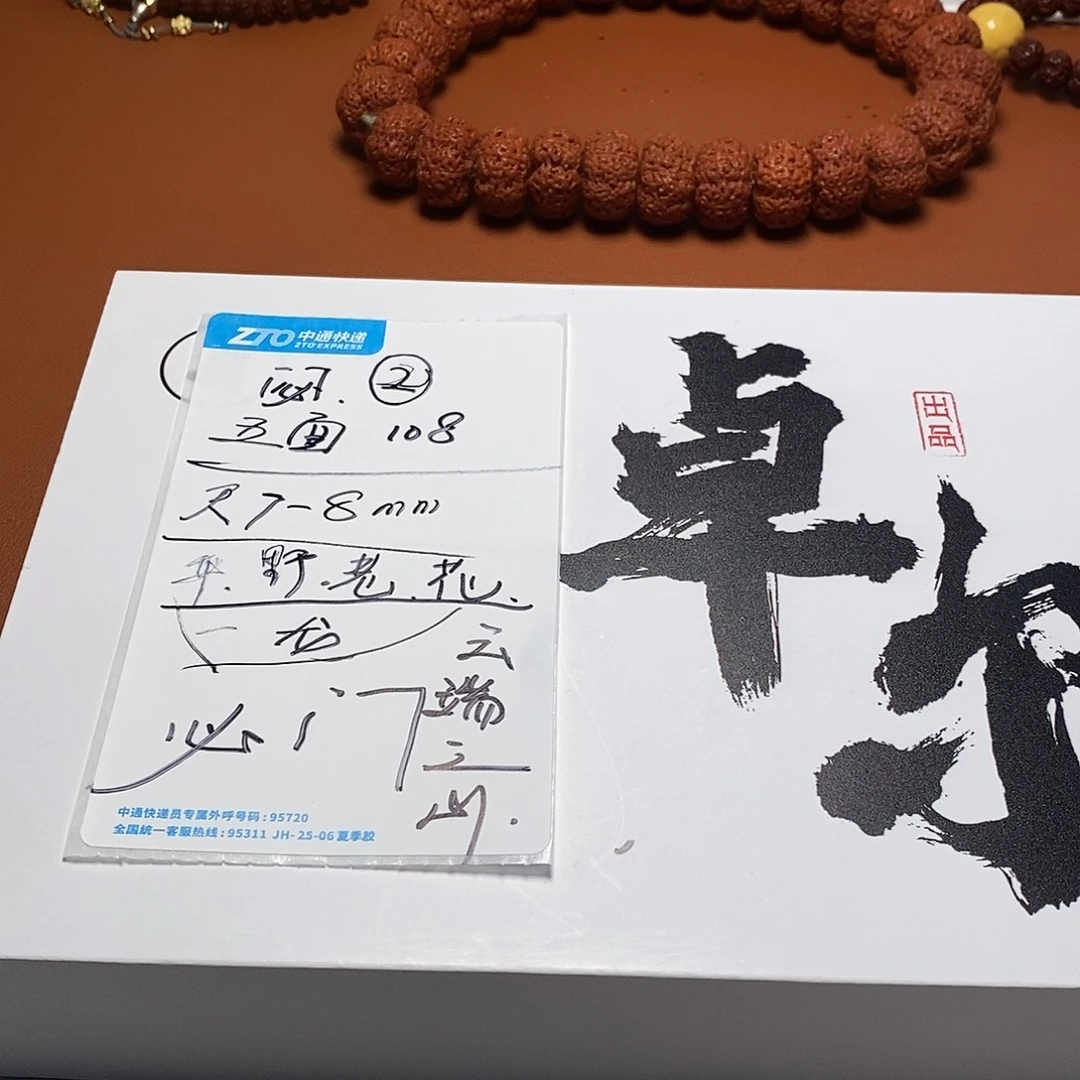 ZTO 中通快递
ZTO EXPRESS
②
五面 108
尺7-8mm
野.老.花.
一龙
云
端
之
必
中通快递员专属外呼号码:95720
全国统一客服热线:95311 JH-25-06夏季胶
卓
出品